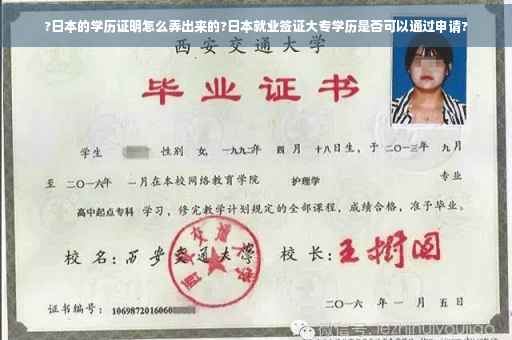 ?日本的学历证明怎么弄出来的?日本就业签证大专学历是否可以通过申请?
西安交通大学
毕业证书
学生 性别 女,一九九二年 四 月 十八日生,于 二〇一三年 九月
至 二〇一六年 一月在本校网络教育学院 护理学 专业
高中起点专科 学习,修完教学计划规定的全部课程,成绩合格,准予毕业。
校 名:西安交通大学 校 长:王树国
西安交通大学
证书编号:1069872016060
二〇一六 年 一 月 五 日
微信号:jezhihuiyoujiao